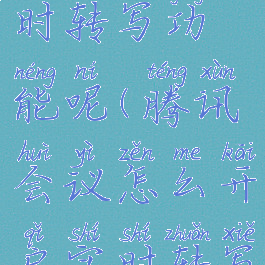 时转写功
néng ni téng xùn
能呢(腾讯
huì yì zěn me kāi
会议怎么开
qǐ shí shí zhuǎn xiě
启实时转写